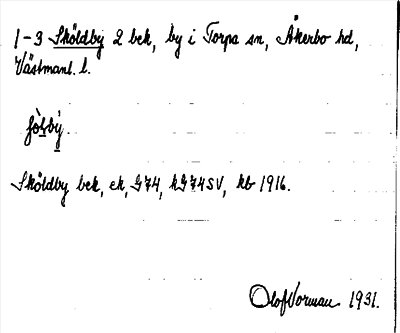 1-3 Sköldby 2 bek, by i Torpa sn, Åkerbo hd,
Västmanl. l.
Sköldby bek, ek, G74, kG74SV, kb 1916.
Olof Vorman 1931.